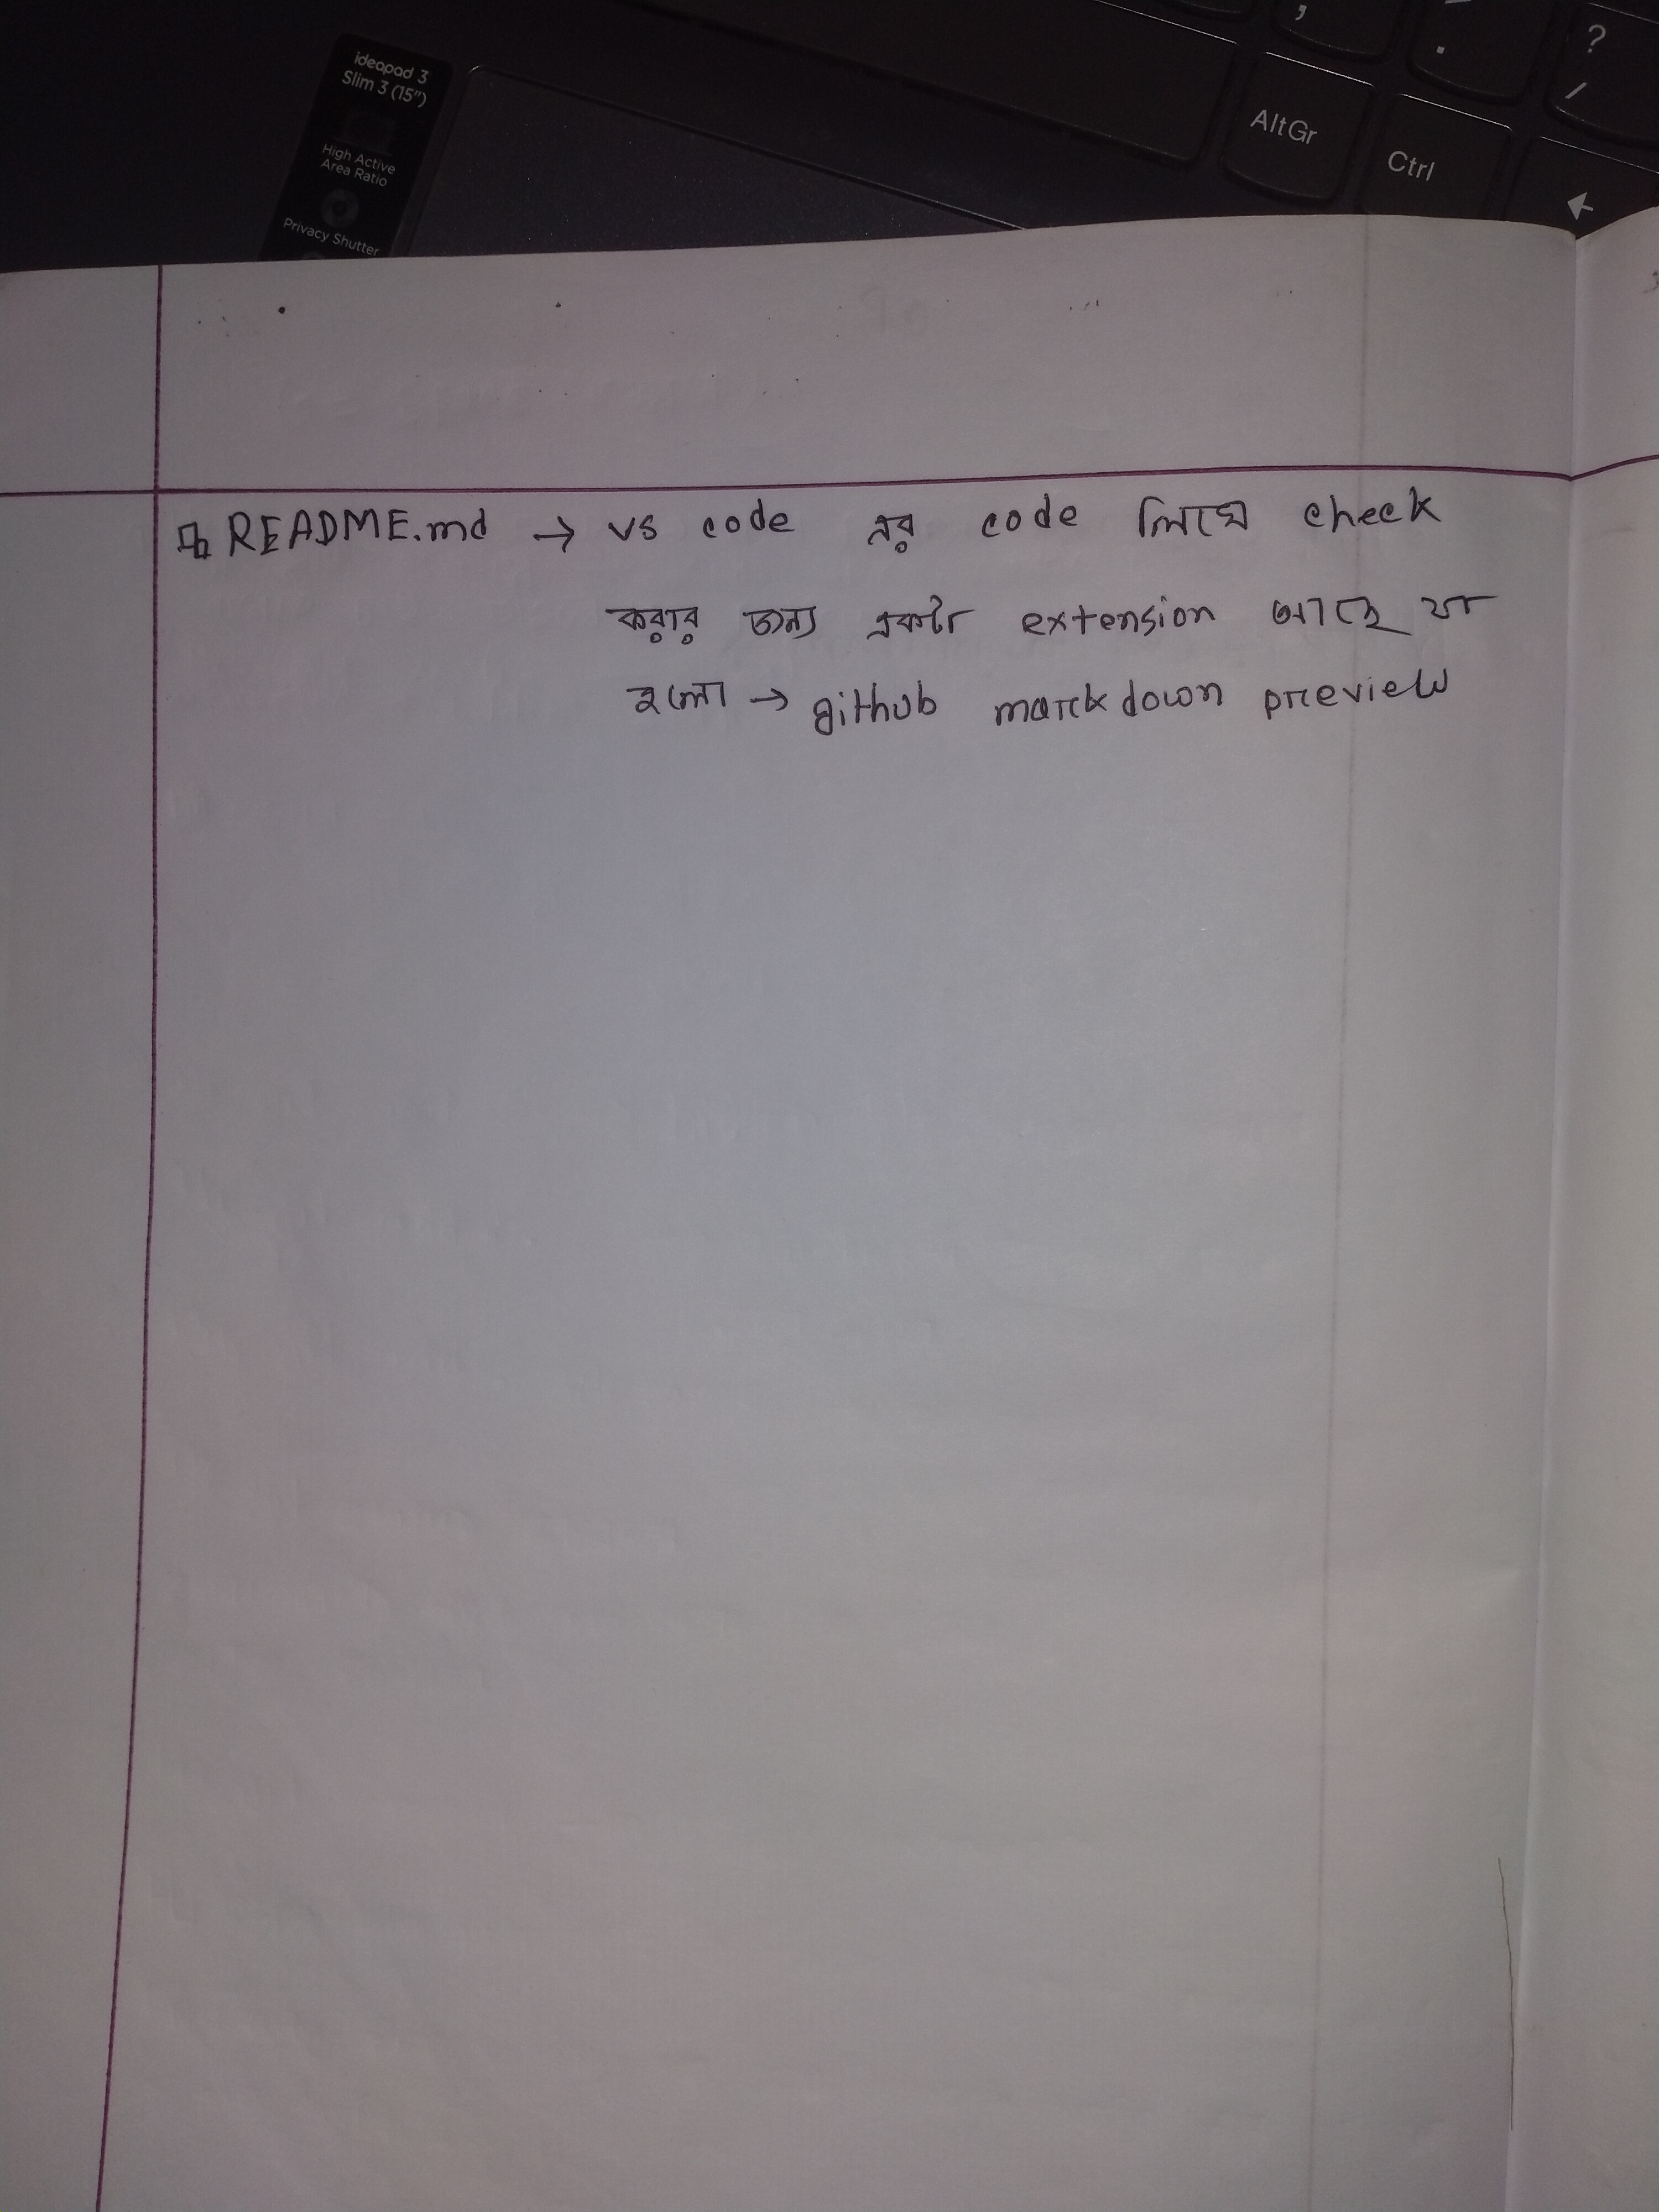 ideapad 3
Slim 3 (15")
High Active
Area Ratio
Privacy Shutter
AltGr
Ctrl
?
/
README.md → vs code এর code লিখে check
করার জন্য একটা extension আছে যা
হলো → github markdown preview